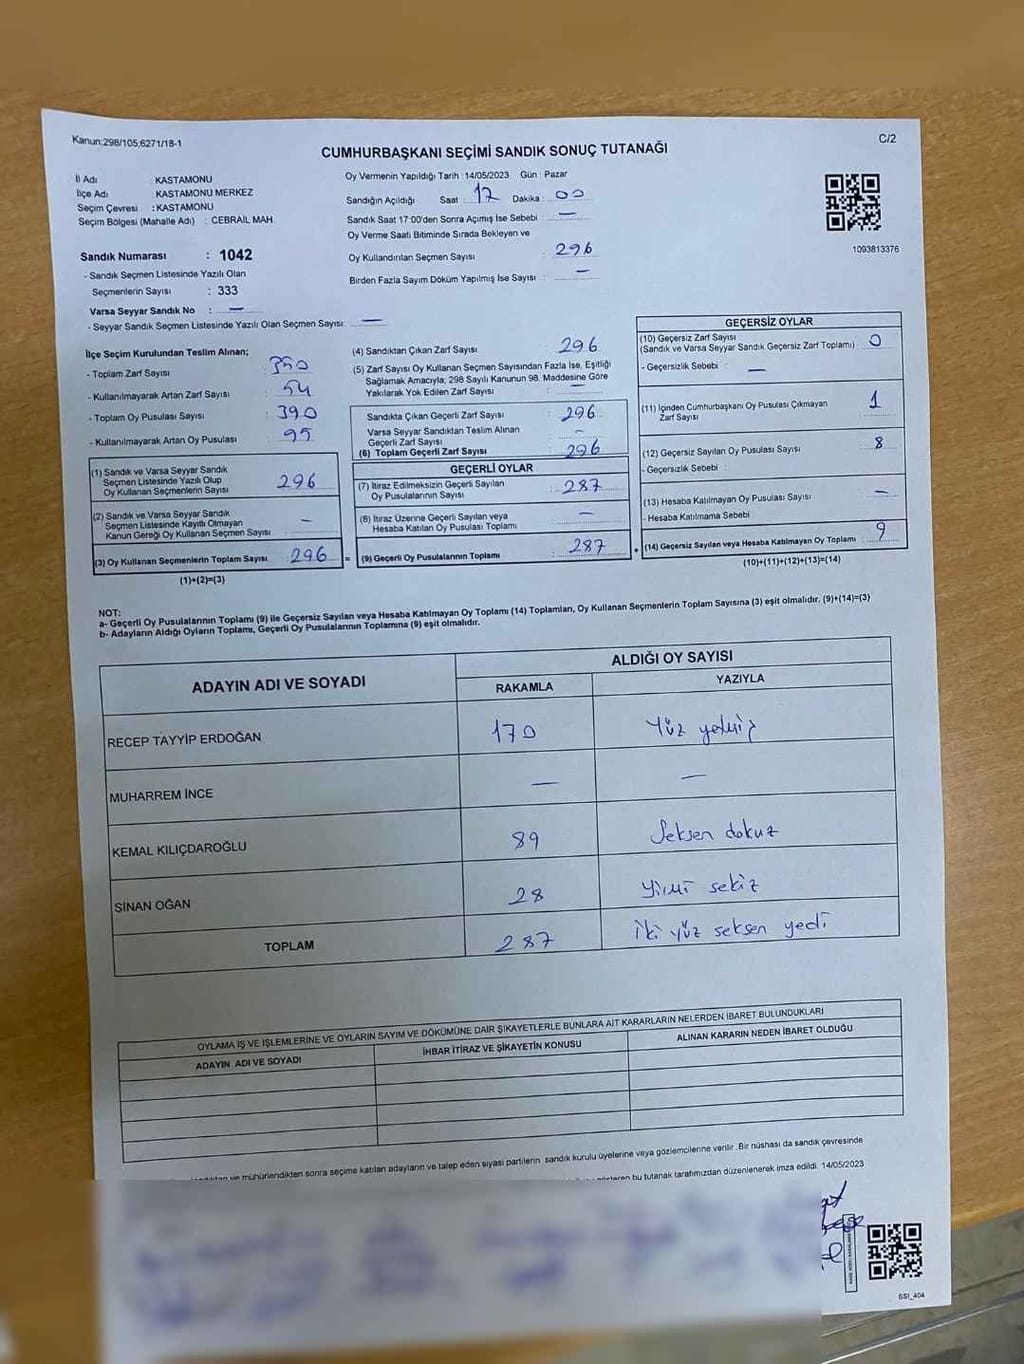 Kanun:298/105,6271/18-1
C/2
CUMHURBAŞKANI SEÇİMİ SANDIK SONUÇ TUTANAĞI
İl Adı : KASTAMONU
İlçe Adı : KASTAMONU MERKEZ
Seçim Çevresi : KASTAMONU
Seçim Bölgesi (Mahalle Adı) : CEBRAİL MAH.
Oy Vermenin Yapıldığı Tarih :14/05/2023 Gün : Pazar
Sandığın Açıldığı Saat : 17 Dakika : 00
Sandık Saat 17:00'den Sonra Açımış İse Sebebi : —
Oy Verme Saati Bitiminde Sırada Bekleyen ve
Oy Kullandırılan Seçmen Sayısı : 296
Birden Fazla Sayım Döküm Yapılmış İse Sayısı : —
1093813376
Sandık Numarası : 1042
- Sandık Seçmen Listesinde Yazılı Olan
Seçmenlerin Sayısı : 333
Varsa Seyyar Sandık No : —
- Seyyar Sandık Seçmen Listesinde Yazılı Olan Seçmen Sayısı: —
İlçe Seçim Kurulundan Teslim Alınan;
- Toplam Zarf Sayısı : 350
- Kullanılmayarak Artan Zarf Sayısı : 54
- Toplam Oy Pusulası Sayısı : 390
- Kullanılmayarak Artan Oy Pusulası : 95
(1) Sandık ve Varsa Seyyar Sandık
Seçmen Listesinde Yazılı Olup
Oy Kullanan Seçmenlerin Sayısı : 296
(2) Sandık ve Varsa Seyyar Sandık
Seçmen Listesinde Kayıtlı Olmayan
Kanun Gereği Oy Kullanan Seçmen Sayısı : —
(3) Oy Kullanan Seçmenlerin Toplam Sayısı : 296 =
(1)+(2)=(3)
(4) Sandıktan Çıkan Zarf Sayısı : 296
(5) Zarf Sayısı Oy Kullanan Seçmen Sayısından Fazla İse, Eşitliği
Sağlamak Amacıyla, 298 Sayılı Kanunun 98. Maddesine Göre
Yakılarak Yok Edilen Zarf Sayısı : —
Sandıkta Çıkan Geçerli Zarf Sayısı : 296
Varsa Seyyar Sandıktan Teslim Alınan
Geçerli Zarf Sayısı : —
(6) Toplam Geçerli Zarf Sayısı : 296
GEÇERLİ OYLAR
(7) İtiraz Edilmeksizin Geçerli Sayılan
Oy Pusulalarının Sayısı : 287
(8) İtiraz Üzerine Geçerli Sayılan veya
Hesaba Katılan Oy Pusulası Toplamı : —
(9) Geçerli Oy Pusulalarının Toplamı : 287 +
GEÇERSİZ OYLAR
(10) Geçersiz Zarf Sayısı
(Sandık ve Varsa Seyyar Sandık Geçersiz Zarf Toplamı) : 0
- Geçersizlik Sebebi : —
(11) İçinden Cumhurbaşkanı Oy Pusulası Çıkmayan
Zarf Sayısı : 1
(12) Geçersiz Sayılan Oy Pusulası Sayısı : 8
- Geçersizlik Sebebi :
(13) Hesaba Katılmayan Oy Pusulası Sayısı : —
- Hesaba Katılmama Sebebi :
(14) Geçersiz Sayılan veya Hesaba Katılmayan Oy Toplamı : 9
(10)+(11)+(12)+(13)=(14)
NOT:
a- Geçerli Oy Pusulalarının Toplamı (9) ile Geçersiz Sayılan veya Hesaba Katılmayan Oy Toplamı (14) Toplamları, Oy Kullanan Seçmenlerin Toplam Sayısına (3) eşit olmalıdır. (9)+(14)=(3)
b- Adayların Aldığı Oyların Toplamı, Geçerli Oy Pusulalarının Toplamına (9) eşit olmalıdır.
ADAYIN ADI VE SOYADI
ALDIĞI OY SAYISI
RAKAMLA YAZIYLA
RECEP TAYYİP ERDOĞAN 170 Yüz yetmiş
MUHARREM İNCE — —
KEMAL KILIÇDAROĞLU 89 Seksen dokuz
SİNAN OĞAN 28 Yirmi sekiz
TOPLAM 287 iki yüz seksen yedi
OYLAMA İŞ VE İŞLEMLERİNE VE OYLARIN SAYIM VE DÖKÜMÜNE DAİR ŞİKAYETLERLE BUNLARA AİT KARARLARIN NELERDEN İBARET BULUNDUKLARI
ADAYIN ADI VE SOYADI İHBAR İTİRAZ VE ŞİKAYETİN KONUSU ALINAN KARARIN NEDEN İBARET OLDUĞU
ve mühürlendikten sonra seçime katılan adayların ve talep eden siyasi partilerin sandık kurulu üyelerine veya gözlemcilerine verilir. Bir nüshası da sandık çevresinde
gösteren bu tutanak tarafımızdan düzenlenerek imza edildi. 14/05/2023
SSI_404